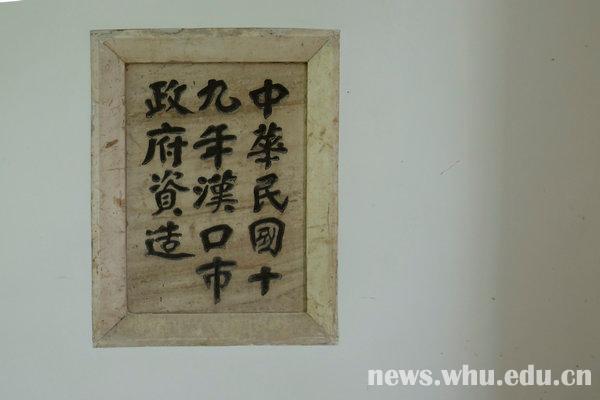 中華民國十
九年漢口市
政府資造
news.whu.edu.cn